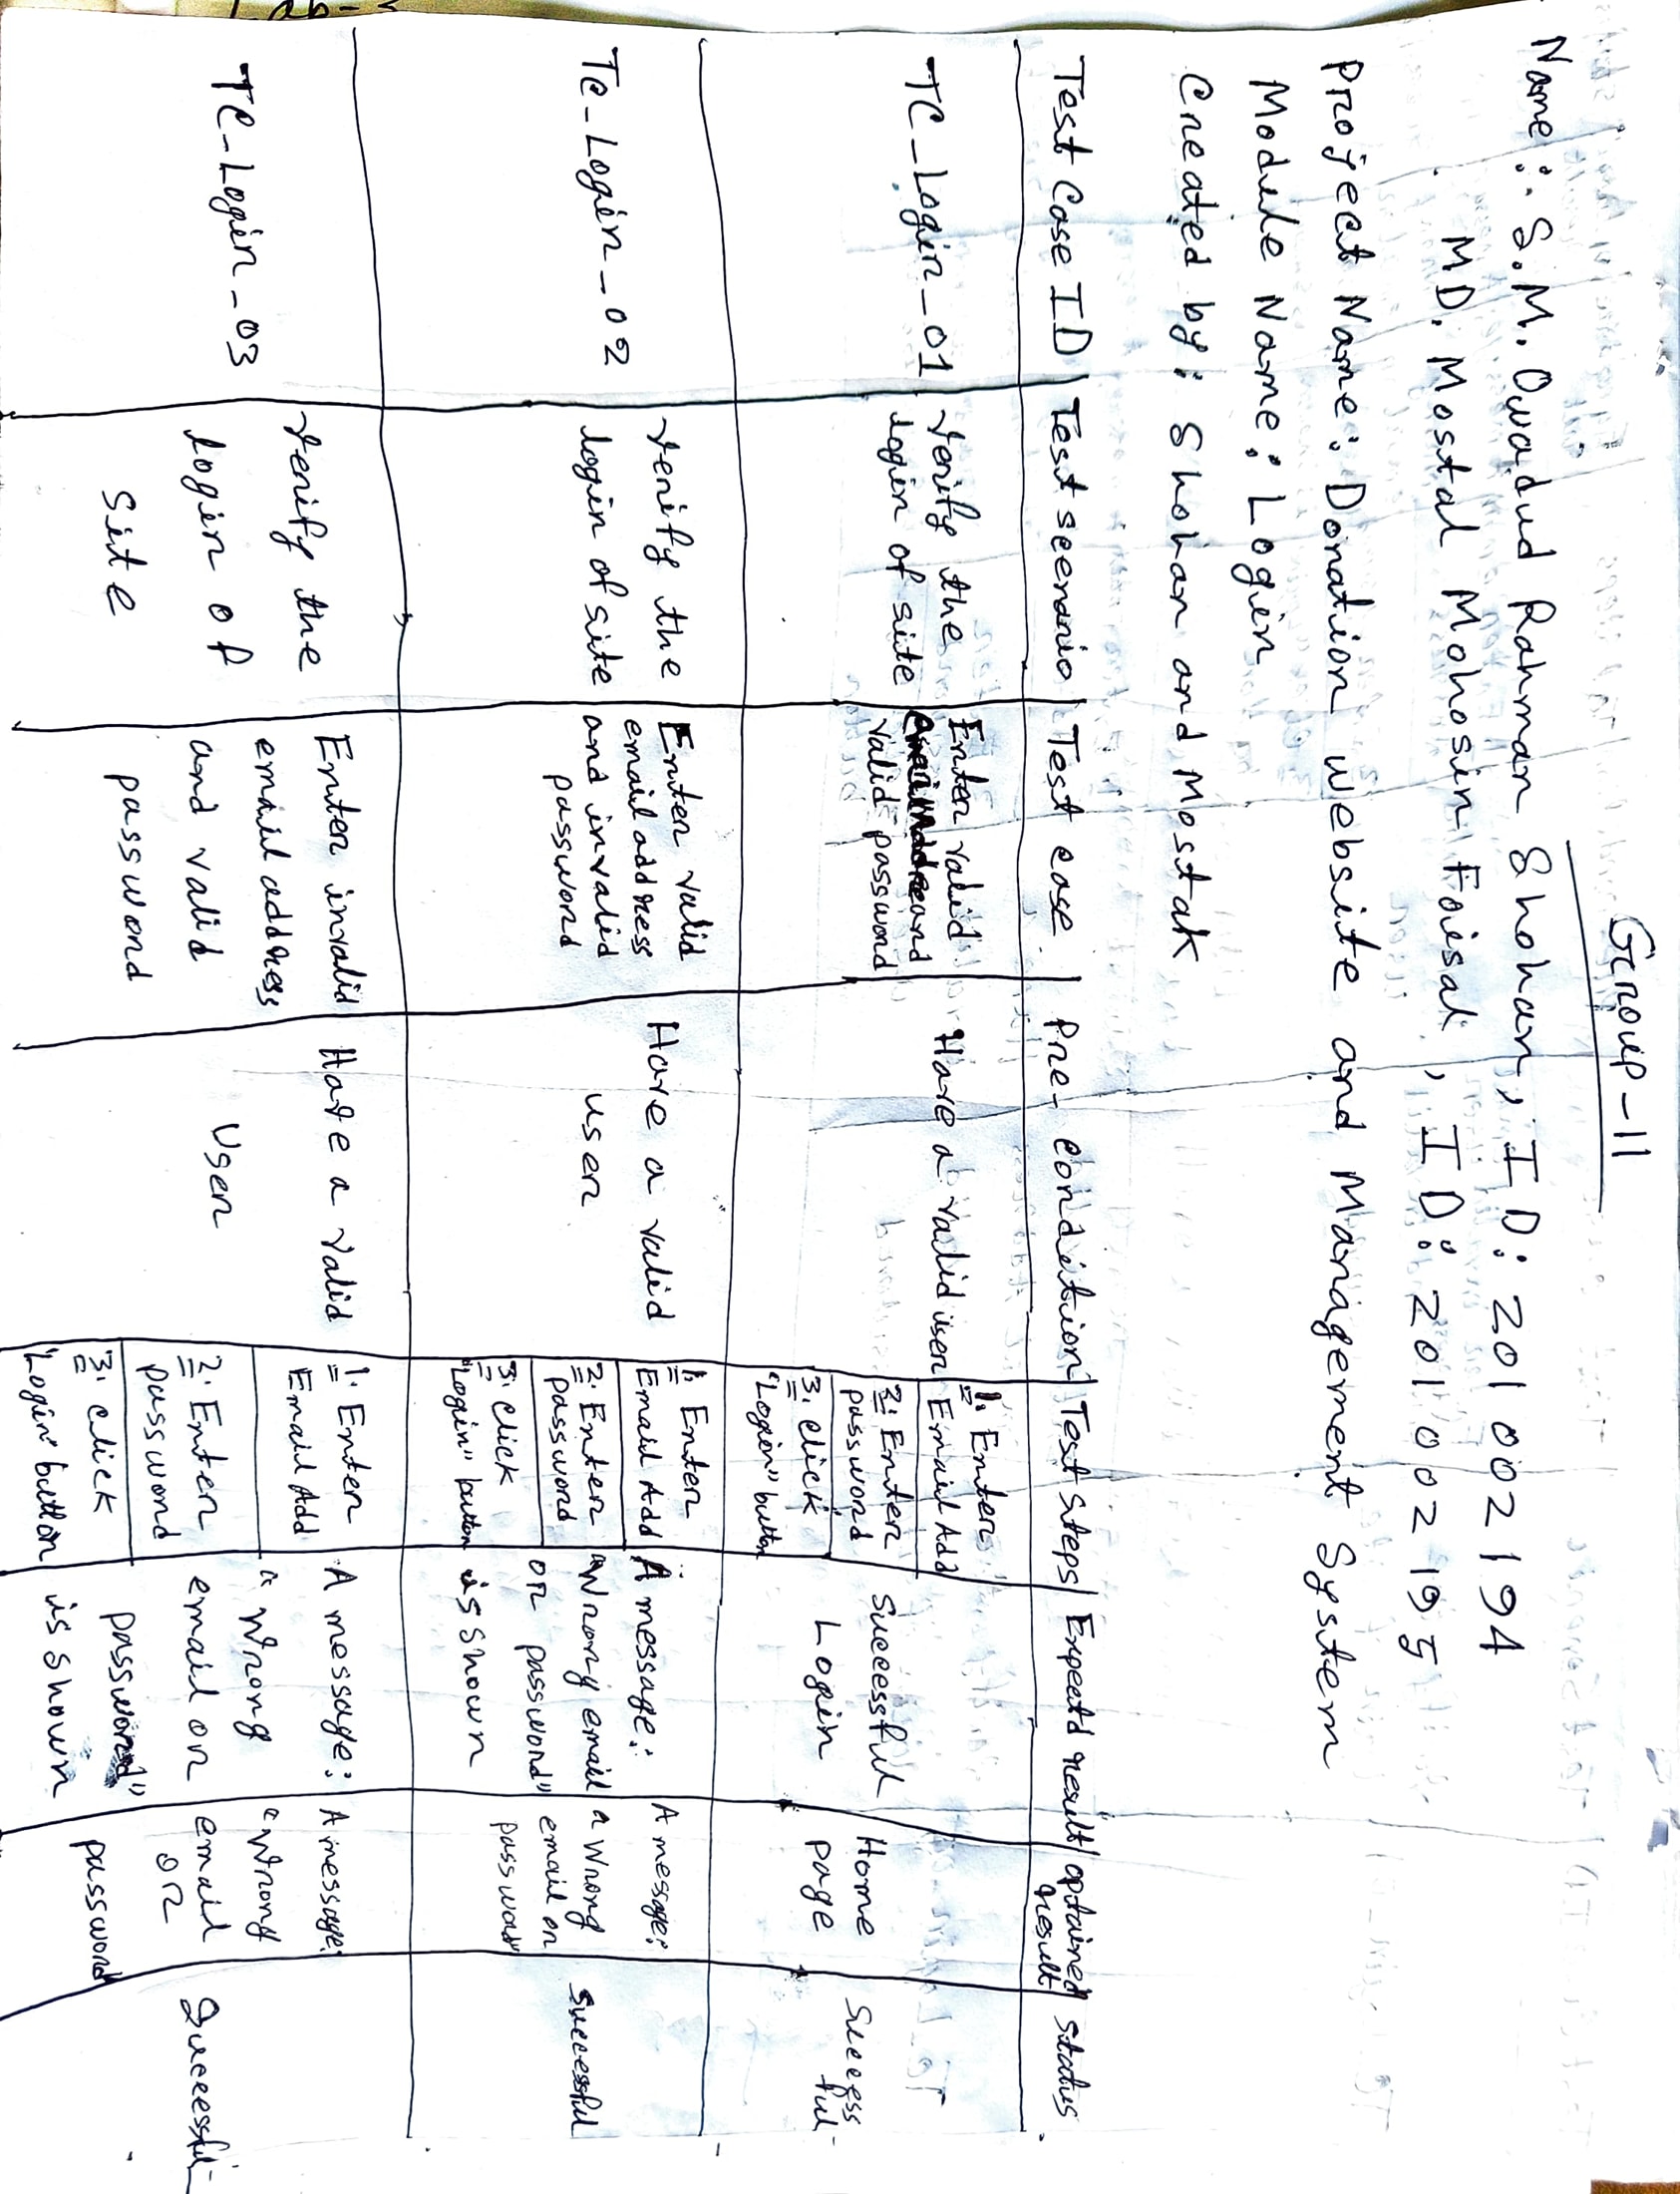 Group-11
Name: S.M. Owadud Rahman Shohan, ID: 201002194
MD. Mostak Mohosin Faisal, ID: 201002195
Project Name: Donation website and Management System
Module Name: Login
Created by: Shohan and Mostak
Test Case ID
Test scenario
Test case
Pre-condition
Test Steps
Expeatd result
optained
result
status
TC_Login_01
Verify the
login of site
Enter valid
and
valid password
Have a valid user
1. Enter
Email Add
2. Enter
password
3. click
"Login" button
Successful
Login
Home
page
Success
ful
TC_Login_02
verify the
login of site
Enter valid
email address
and invalid
password
Have a valid
user
1. Enter
Email Add
2. Enter
password
3. click
"Login" button
A message:
"Wrong email
or password"
is shown
A message:
"Wrong
email or
password"
Successful
TC_Login_03
verify the
login of
site
Enter invalid
email address
and valid
password
Have a valid
User
1. Enter
Email Add
2. Enter
password
3. click
"Login" button
A message:
"Wrong
email or
password"
is shown
A message:
"Wrong
email
or
password
Successful